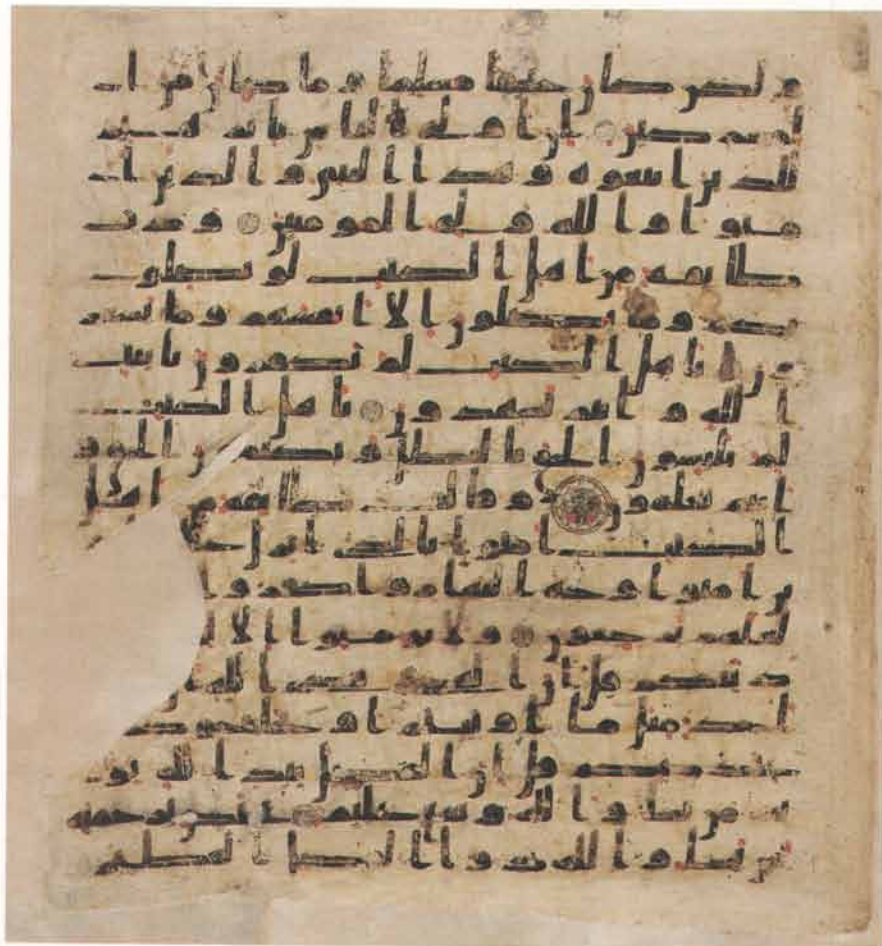 ولكن كان حنيفا مسلما وما كان من ا
لمشركين ان اولى الناس بابرهيم
للذين اتبعوه وهذا النبي والذين ا
منوا والله ولي المومنين ودت
طايفة من اهل الكتب لو يضلو
نكم وما يضلون الا انفسهم وما يشعر
ون ياهل الكتب لم تكفرون بايت
الله وانتم تشهدون ياهل الكتب
لم تلبسون الحق بالبطل وتكتمون الحق و
انتم تعلمون وقالت طايفة من اهل
الكتب امنوا بالذي انزل
ين امنوا وجه النهار واكفروا
لعلهم يرجعون ولا تومنوا الا
دينكم قل ان الهدى هدى الله
احد مثل ما اوتيتم او يحاجوكم
عند ربكم قل ان الفضل بيد الله يو
تيه من يشا والله وسع عليم يختص برحمته
من يشا والله ذو الفضل العظيم